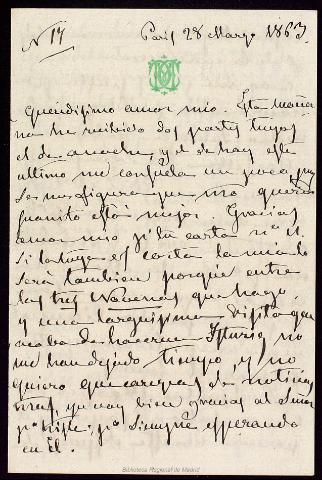 Nº 17
Paris 28 Marzo 1863.
Queridisimo amor mio. Esta maña
na he recibido dos partes tuyos
el de anoche, y el de hoy este
ultimo me consuela un poco pues
se me figura que mi querido
Juanito está mejor. Gracias
amor mio pr tu carta nº 11.
Si la tuya es corta la mia lo
será tambien porque entre
las tres Novenas que hago,
y una larguisima visita que
acaba de hacerme Isturiz no
me han dejado tiempo, y no
quiero que carezcas de noticias
mias, yo voy bien gracias al Señor
pº triste; pº siempre esperando
en El.
Biblioteca Regional de Madrid